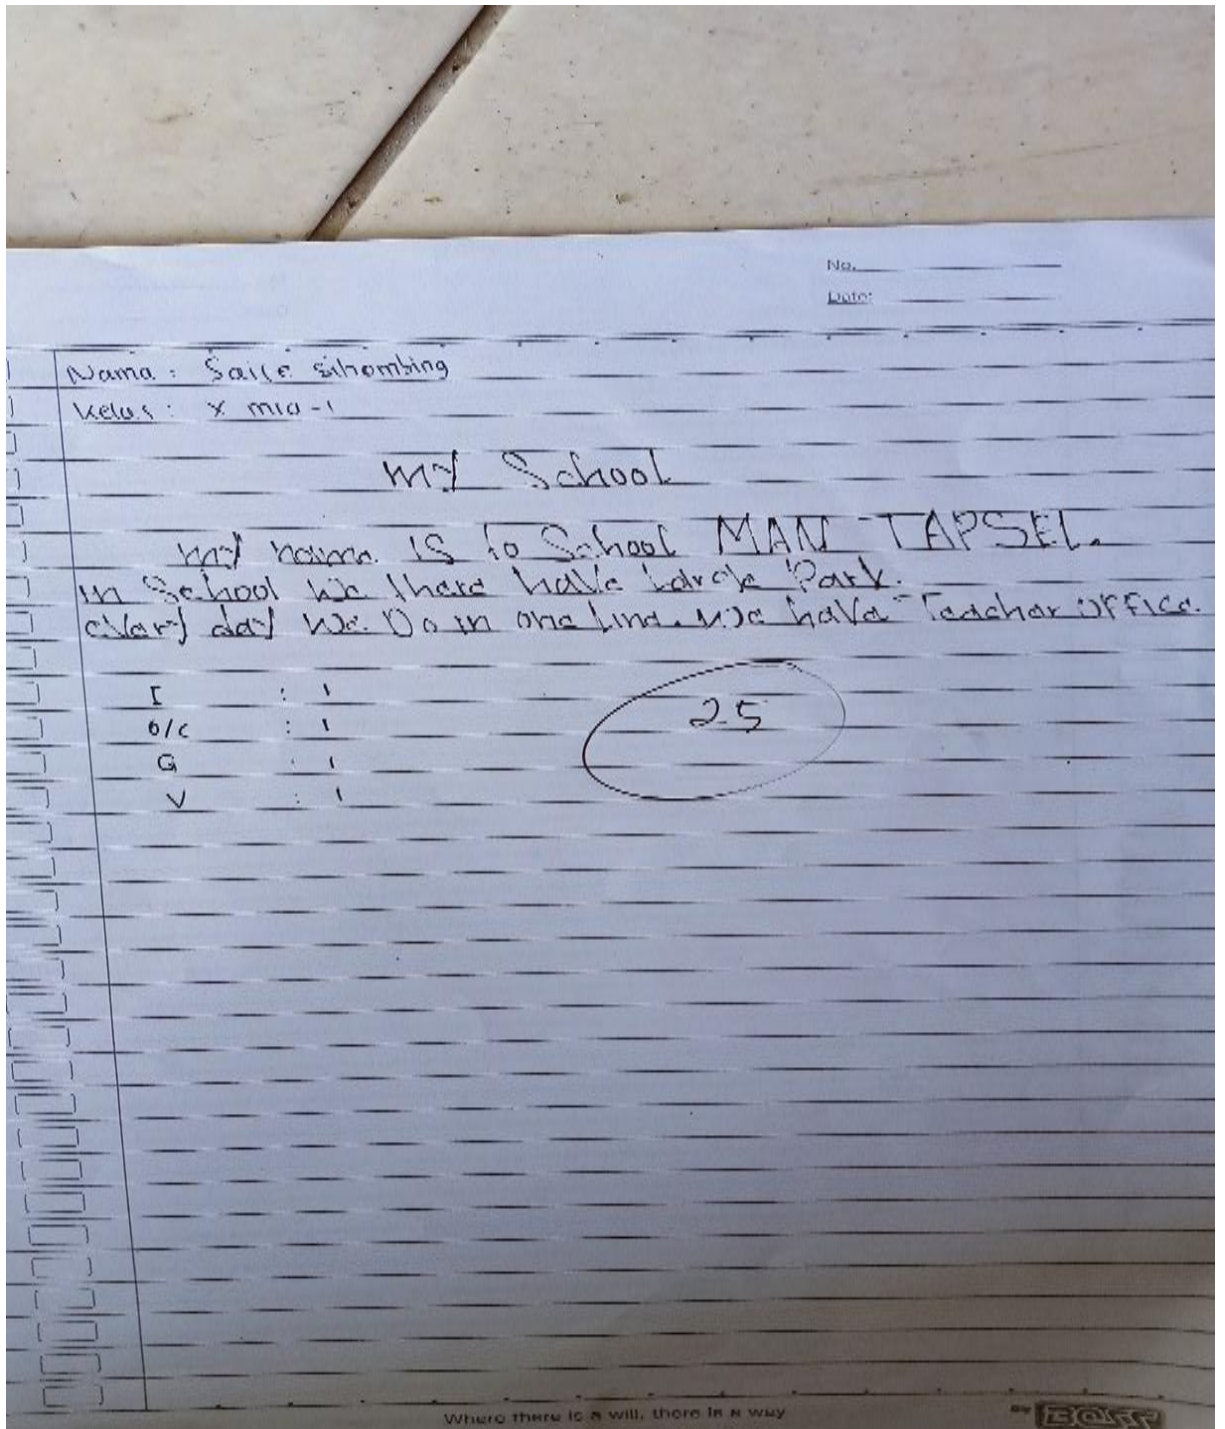 No.
Date:
Nama : Saile sihombing
Kelas : X mia-1
my School
my name is to School MAN TAPSEL.
in School we there have Large Park.
every day we Do in one Line. we have Teacher office.
I : 1
O/C : 1
G : 1
V : 1
25
Where there is a will, there is a way
BY